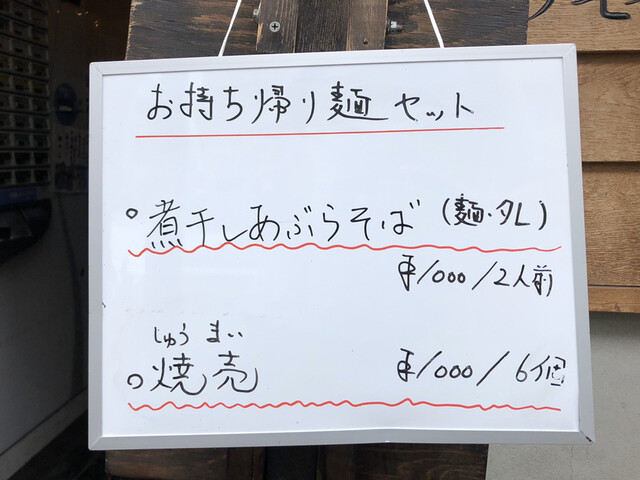 お持ち帰り麺セット
○煮干しあぶらそば (麺・タレ)
¥1000/2人前
しゅうまい
○焼売 ¥1000/6個